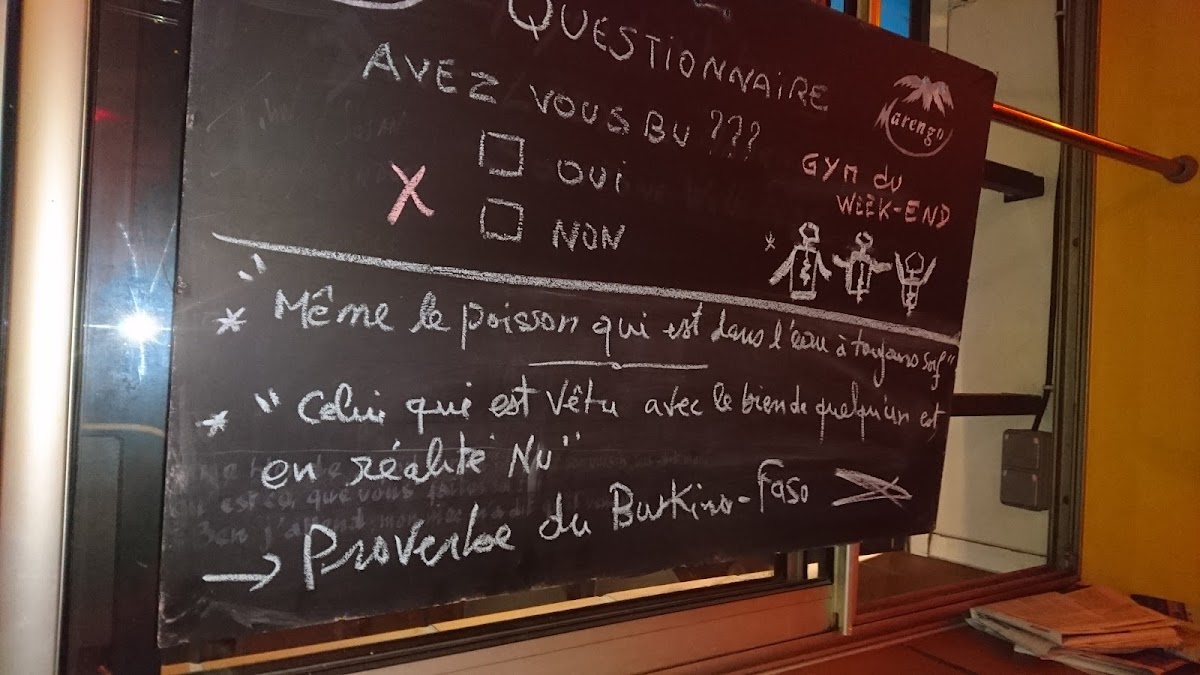 QUESTIONNAIRE
AVEZ VOUS BU ???
OUI
X
NON
Marengo
GYM DU
WEEK-END
*
* "Même le poisson qui est dans l'eau à toujours soif"
* "Celui qui est vêtu avec le bien de quelqu'un est
en réalité Nu"
→ Proverbe du Burkina-Faso